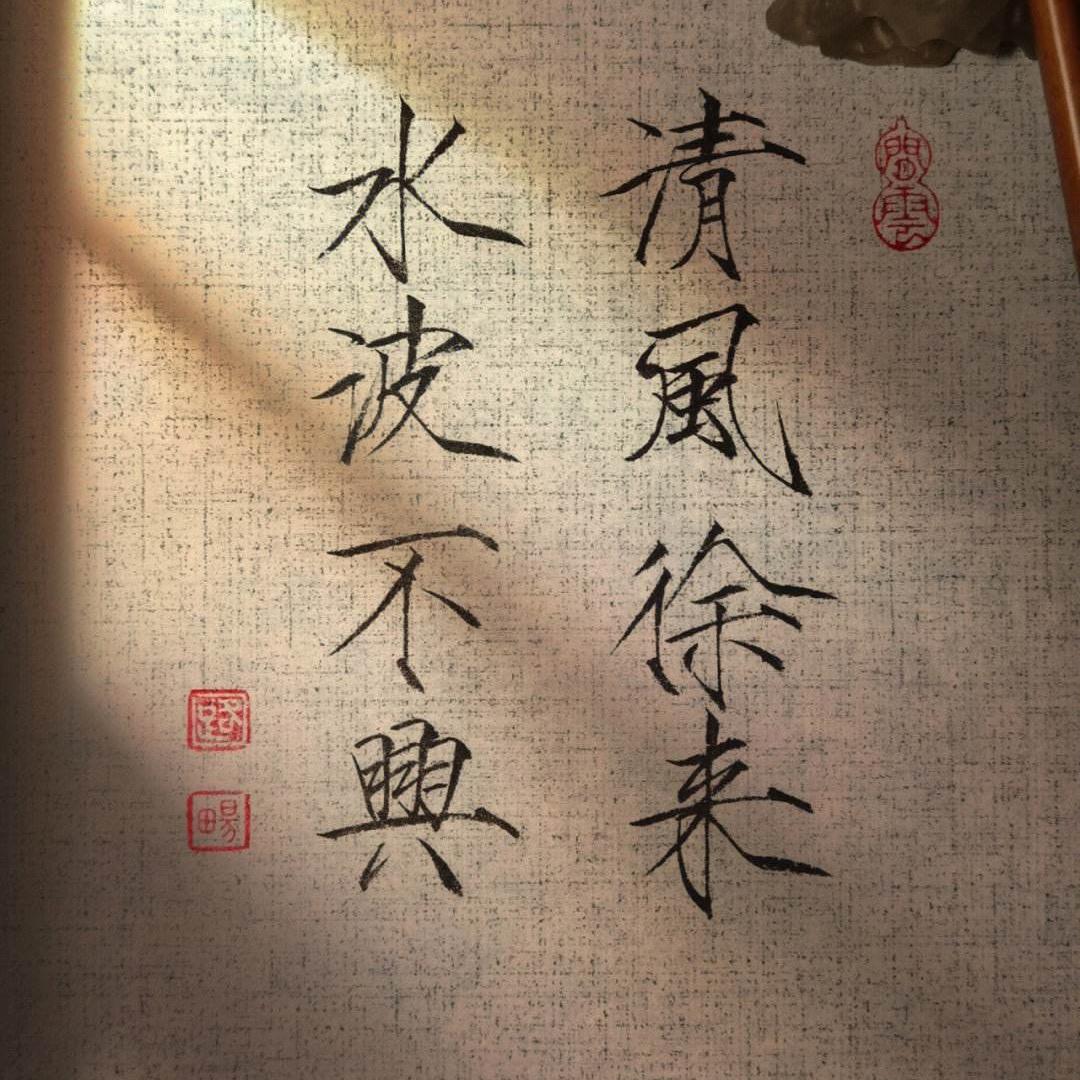 清風徐来
水波不興
閒雲